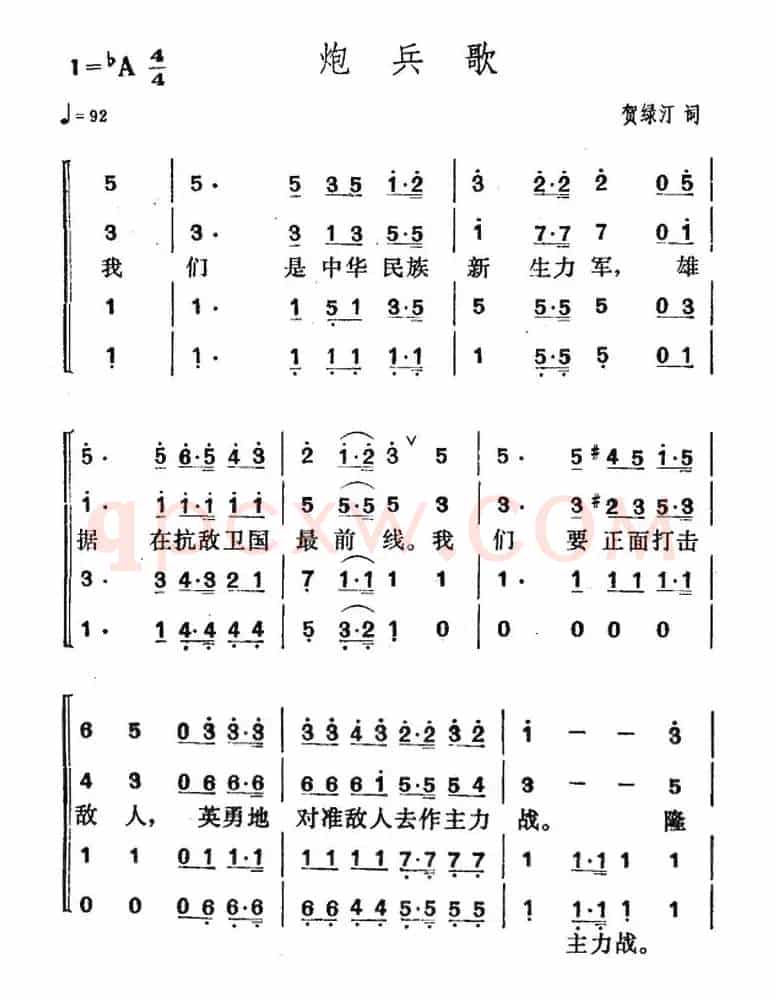 1=♭A 4/4 炮兵歌
♩=92 贺绿汀 词
5 | 5· 5 3 5 i·2̇ | 3̇ 2̇·2̇ 2̇ 0 5̇ |
3 | 3· 3 1 3 5·5 | i 7·7 7 0 i |
我 们 是中华民族 新 生力军, 雄
1 | 1· 1 5̣ 1 3·5 | 5 5·5 5 0 3 |
1̣ | 1̣· 1̣ 1̣ 1̣ 1̣·1̣ | 1 5̣·5̣ 5̣ 0 1 |
5̇· 5̇ 6̇·5̇ 4̇ 3̇ | 2̇ i·2̇ 3̇ ∨ 5 | 5· 5 #4 5 i·5 |
i· i i·i i i | 5 5·5 5 3 | 3· 3 #2 3 5·3 |
据 在抗敌卫国 最 前 线。我 们 要 正面打击
3· 3 4·3 2 1 | 7̣ 1·1 1 1 | 1· 1 1 1 1·1 |
1· 1 4̣·4̣ 4̣ 4̣ | 5̣ 3̣·2̣ 1̣ 0 | 0 0 0 0 |
qpcxw.COM
6 5 0 3̇ 3̇·3̇ | 3̇ 3̇ 4̇ 3̇ 2̇·2̇ 3̇ 2̇ | i – – 3̇ |
4 3 0 6 6·6 | 6 6 6 i 5·5 5 4 | 3 – – 5 |
敌 人, 英勇地 对准敌人去作主力 战。 隆
1 1 0 1 1·1 | 1 1 1 1 7̣·7̣ 7̣ 7̣ | 1 1·1 1 1 |
0 0 0 6̣ 6̣·6̣ | 6̣ 6̣ 6̣ 6̣ 5̣·5̣ 5̣ 5̣ | 1̣ 1̣·1̣ 1̣ 1 |
主力战。